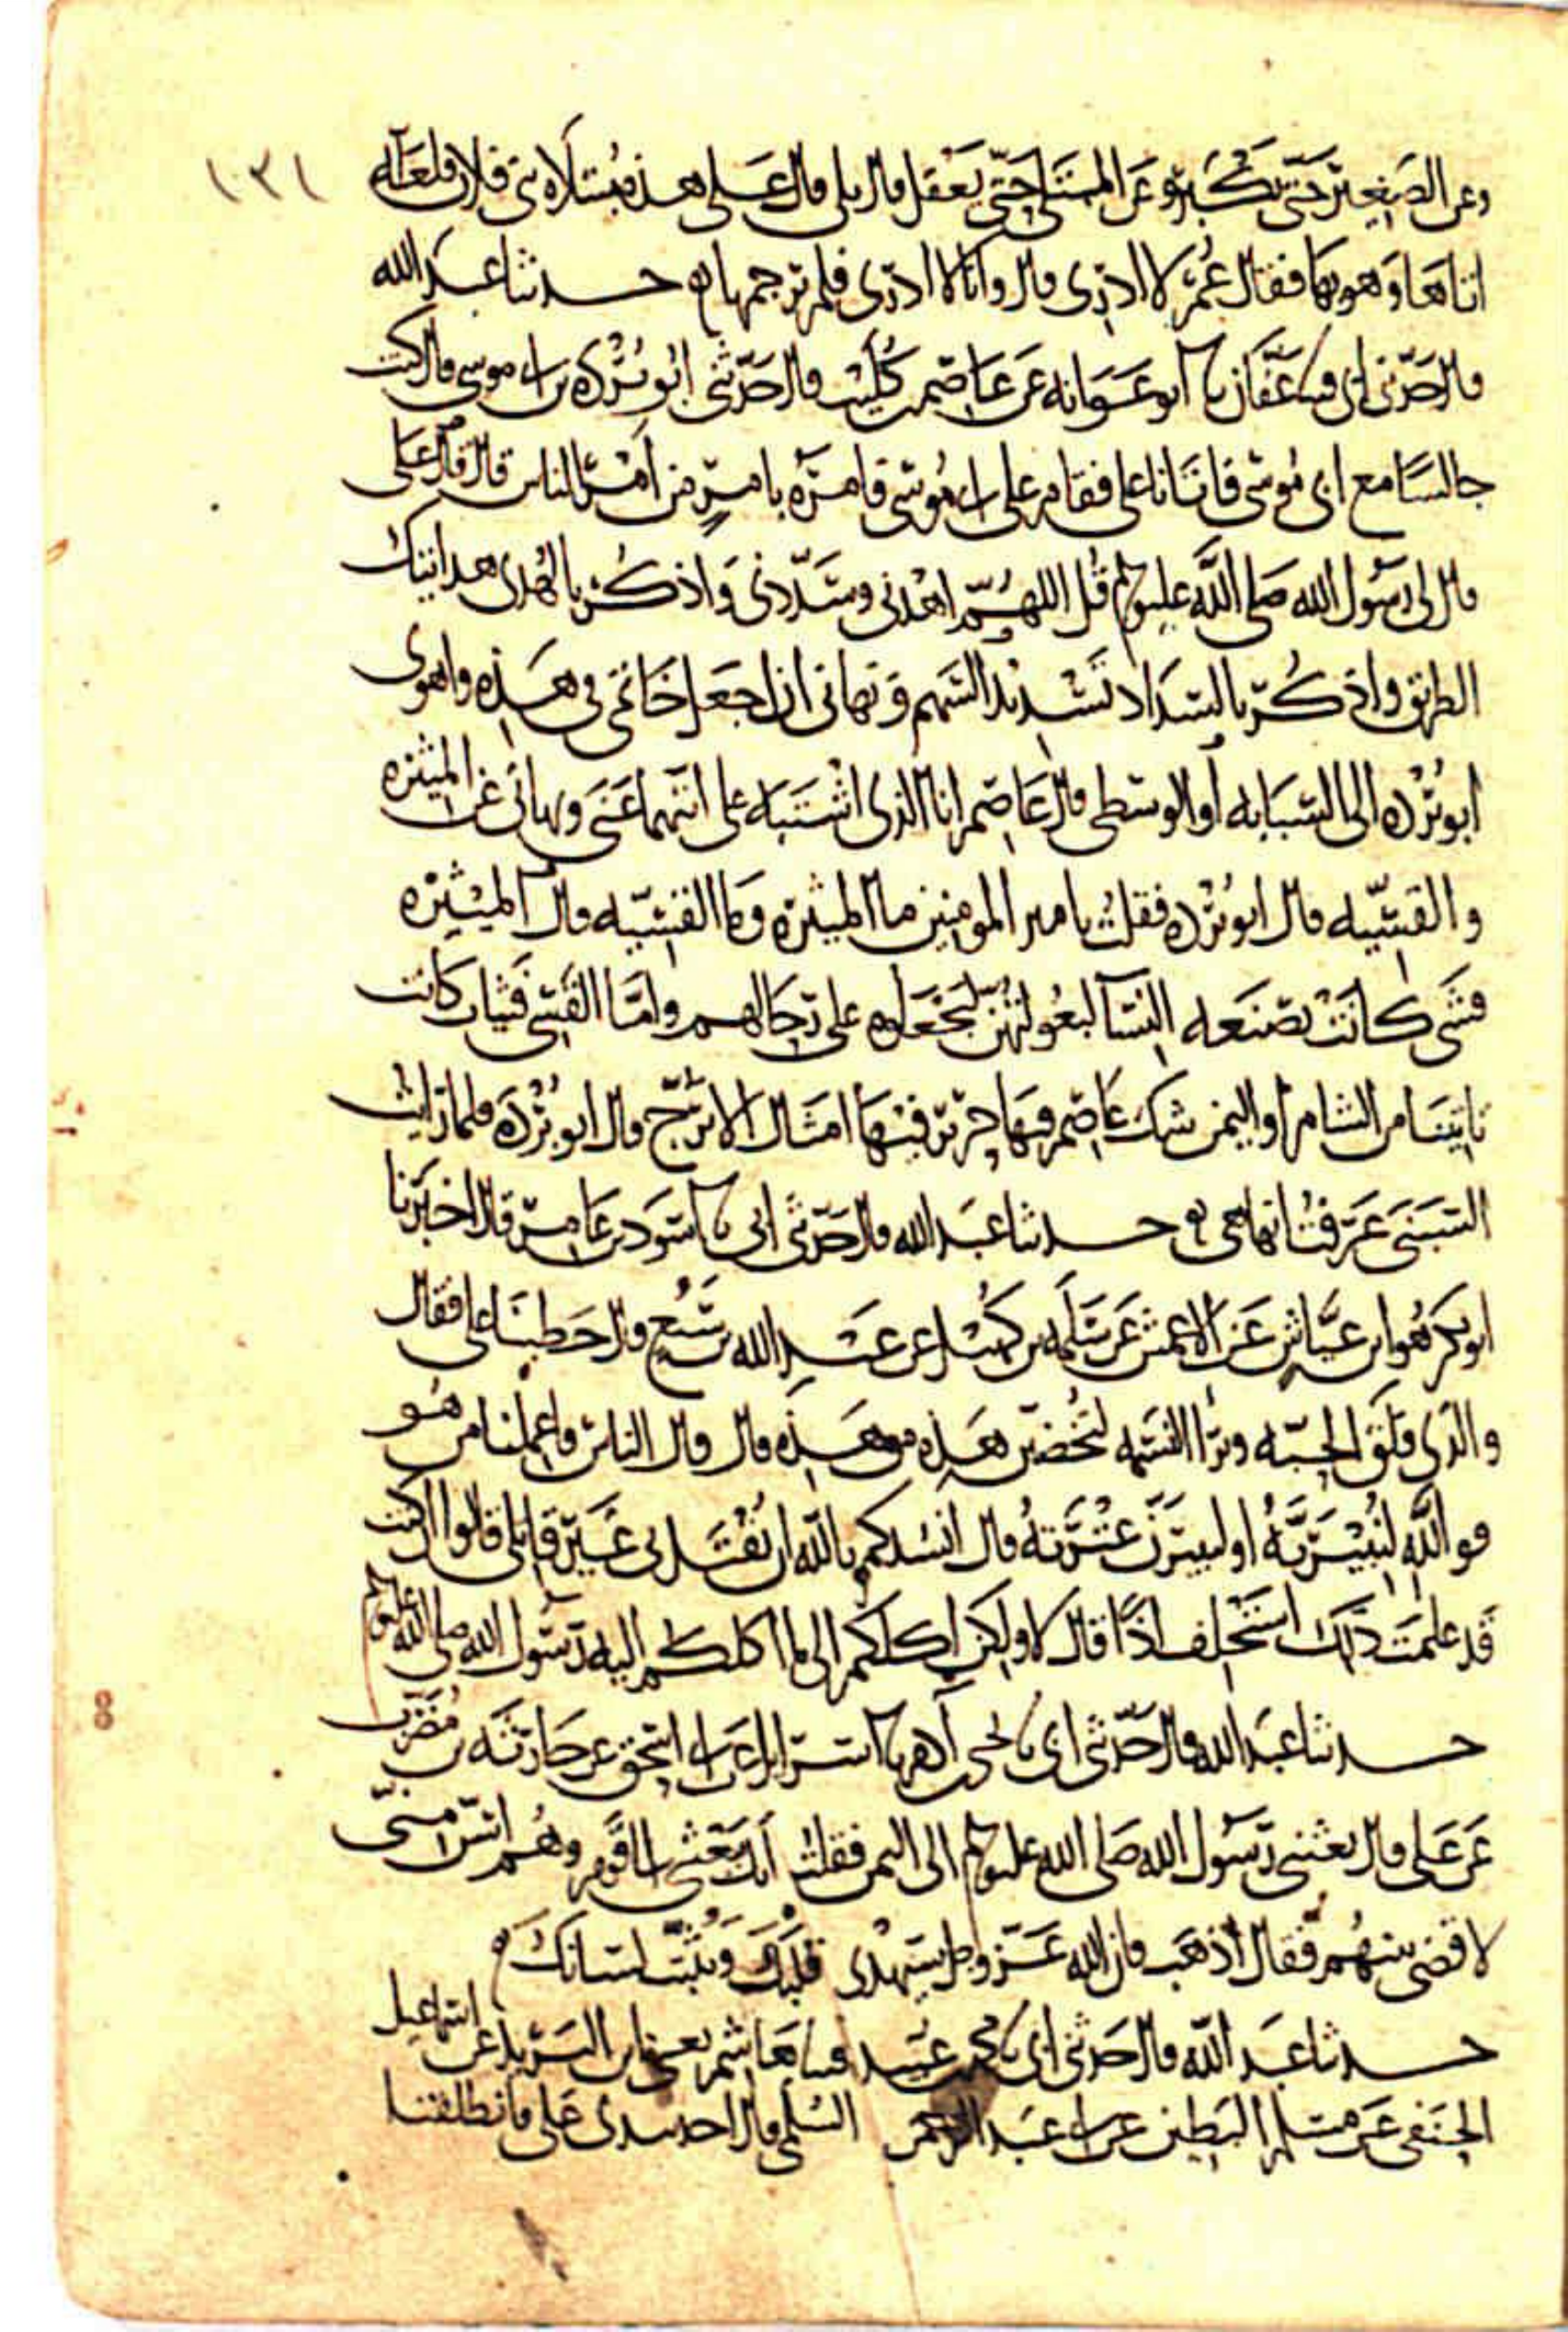 ١٣١
وعن الصغير حتى يكبر وعن المبتلى حتى يعقل قال بلى قال على هذه مبتلاه بنى فلان فلعله
اتاها وهو بها فقال عمر لا ادرى قال وانا لا ادرى فلم يرجمها حدثنا عبد الله
قال حدثنى ابى ثنا عفان ثنا ابو عوانه عن عاصم بن كليب قال حدثنى ابو برده بن ابى موسى قال كنت
جالسا مع ابى موسى فاتانا على فقام على ابى موسى فامره بامر من امر الناس قال قال على
قال لى رسول الله صلى الله عليه وسلم قل اللهم اهدنى وسددنى واذكر بالهدى هدايتك
الطريق واذكر بالسداد تسديد السهم ونهانى ان اجعل خاتمى فى هذه واهوى
ابو برده الى السبابه او الوسطى قال عاصم انا الذى اشتبه على ايتهما عنى ونهانى عن الميثره
والقسيه قال ابو برده فقلت يا امير المومنين ما الميثره وما القسيه قال الميثره
فشى كانت تصنعه النسا لبعولتهن يجعلوه على رحالهم واما القسى فثياب كانت
تاتينا من الشام او اليمن شك عاصم فيها حرير فيها امثال الاترج قال ابو برده فلما رايت
السبنى عرفت انها هى حدثنا عبد الله قال حدثنى ابى ثنا اسود بن عامر قال اخبرنا
ابو بكر هو ابن عياش عن الاعمش عن سلمه بن كهيل عن عبد الله بن سبع قال خطبنا على فقال
والذى فلق الحبه وبرا النسمه لتخضبن هذه من هذه قال قال الناس فاعلمنا من هو
فو الله لنبيرنه او لنبيرن عترته قال انشدكم بالله ان يقتل بى غير قاتلى قالوا ان كنت
قد علمت ذلك استخلف اذا قال لا ولكن اكلكم الى ما وكلكم اليه رسول الله صلى الله عليه وسلم
حدثنا عبد الله قال حدثنى ابى ثنا يحيى بن آدم ثنا اسرائيل عن ابى اسحق عن حارثه بن مضرب
عن على قال بعثنى رسول الله صلى الله عليه وسلم الى اليمن فقلت انك تبعثنى الى قوم وهم اسن منى
لاقضى بينهم فقال اذهب فان الله عز وجل سيهدى قلبك ويثبت لسانك
حدثنا عبد الله قال حدثنى ابى ثنا محمد بن عبيد ثنا هاشم يعنى ابن البريد عن اسماعيل
الحنفى عن مسلم البطين عن ابى عبد الرحمن السلمى قال اخذ بيدى على فانطلقنا